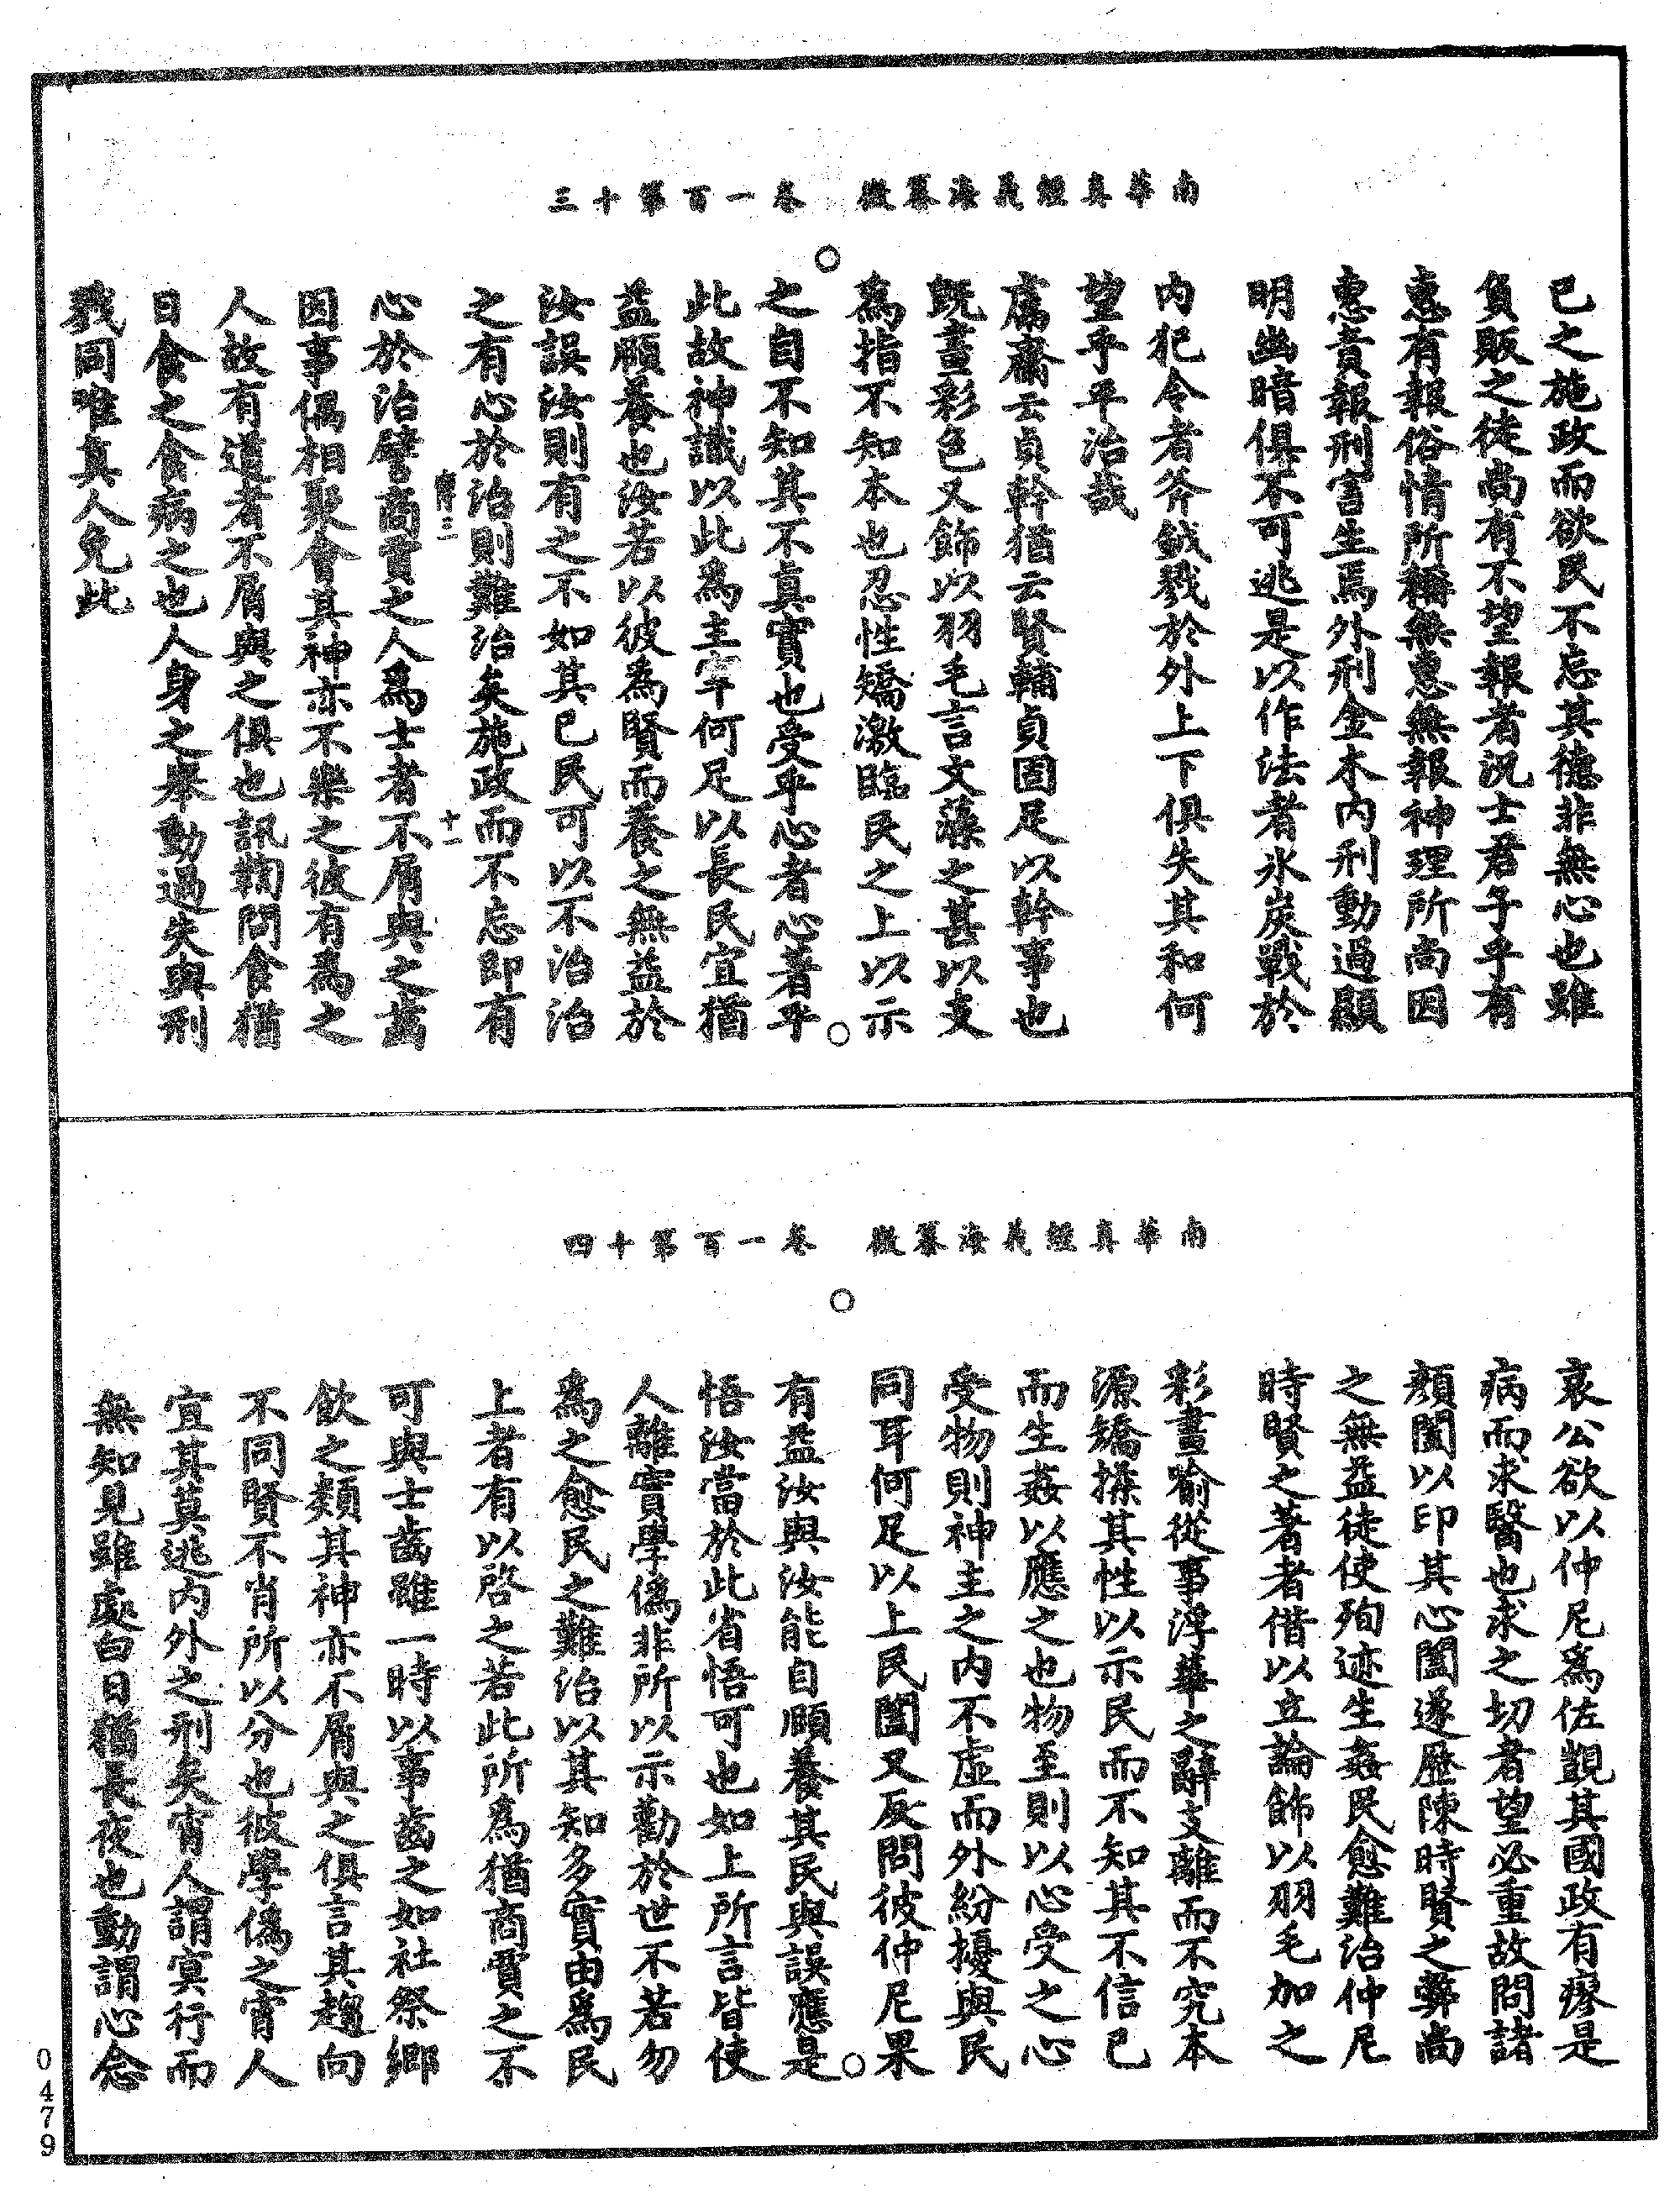 南華真經義海纂微　卷一百第十三
己之施政而欲民不忘其德非無心也雖
負販之徒尚有不望報者況士君子乎有
惠有報俗情所稱無惠無報神理所尚因
惠責報刑害生焉外刑金木內刑動過顯
明幽暗俱不可逃是以作法者氷炭戰於
內犯令者斧鉞戮於外上下俱失其和何
望乎平治哉
鬳齋云貞幹猶云賢輔貞固足以幹事也
既畫彩色又飾以羽毛言文藻之甚以支
為指不知本也忍性矯激臨民之上以示
之自不知其不真實也受乎心者心著乎
此故神識以此為主宰何足以長民宜猶
益頤養也汝若以彼為賢而養之無益於
汝誤汝則有之不如其已民可以不治治
之有心於治則難治矣施政而不忘即有
三
十一
心於治譬商賈之人為士者不屑與之齒
因事偶相聚會其神亦不樂之彼有為之
人故有道者不屑與之俱也訊鞫問食猶
日食之食病之也人身之舉動過失與刑
戮同唯真人免此
南華真經義海纂微　卷一百第十四
哀公欲以仲尼為佐覬其國政有瘳是
病而求醫也求之切者望必重故問諸
顏闔以印其心闔遂歷陳時賢之弊尚
之無益徒使殉迹生姦民愈難治仲尼
時賢之著者借以立論飾以羽毛加之
彩畫喻從事浮華之辭支離而不究本
源矯揉其性以示民而不知其不信已
而生姦以應之也物至則以心受之心
受物則神主之內不虛而外紛擾與民
同耳何足以上民闔又反問彼仲尼果
有益汝與汝能自頤養其民與誤應是
悟汝當於此省悟可也如上所言皆使
人離實學偽非所以示勸於世不若勿
為之愈民之難治以其知多實由為民
上者有以啓之若此所為猶商賈之不
可與士齒雖一時以事齒之如社祭鄉
飲之類其神亦不屑與之俱言其趨向
不同賢不肖所以分也彼學偽之宵人
宜其莫逃內外之刑矣宵人謂冥行而
無知見雖處白日猶長夜也動謂心念
0479